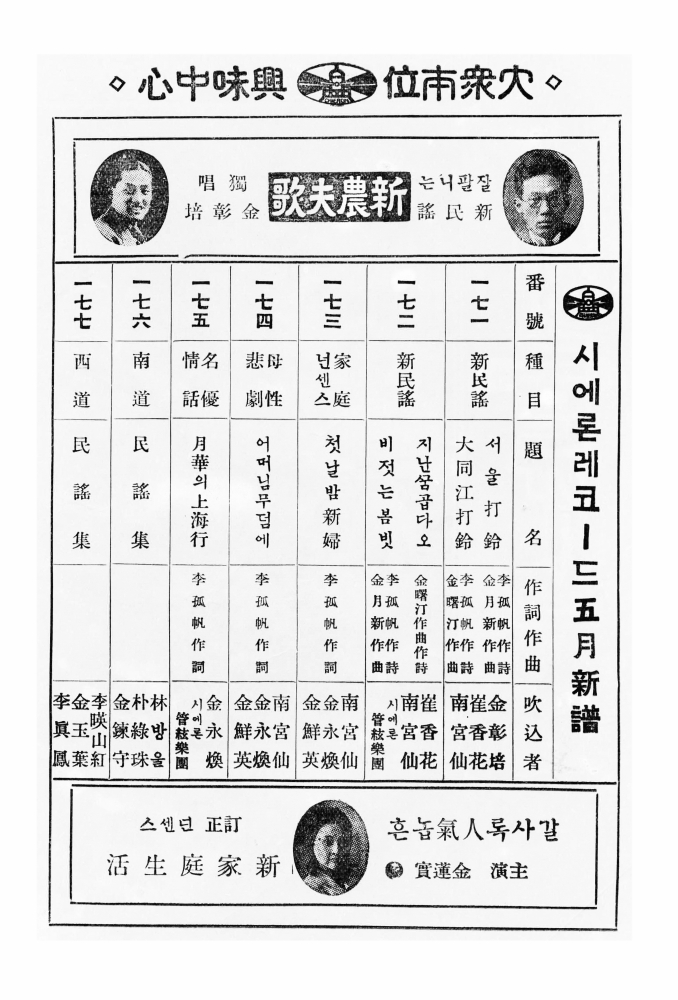 大衆本位 興味中心
잘팔니는
新民謠
新農夫歌
獨唱
金彰培
시에론레코ー드五月新譜
番號 種目 題名 作詞作曲 吹込者
一七一 新民謠
서울打鈴 李孤帆作詩 金月新作曲 金彰培
大同江打鈴 李孤帆作詩 金曙汀作曲 崔香花 南宮仙
一七二 新民謠
지난쑴곱다오 金曙汀作曲作詩 崔香花 南宮仙
비젓는봄빗 李孤帆作詩 金月新作曲 시에론管絃樂團
一七三 家庭넌센스 첫날밤新婦 李孤帆作詞 南宮仙 金永煥 金鮮英
一七四 母性悲劇 어머님무덤에 李孤帆作詞 南宮仙 金永煥 金鮮英
一七五 名優情話 月華의上海行 李孤帆作詞 金永煥 시에론管絃樂團
一七六 南道 民謠集 林방울 朴綠珠 金鍊守
一七七 西道 民謠集 李暎山紅 金玉葉 李眞鳳
갈사록人氣놉흔
主演 金蓮實
訂正 넌센스
新家庭生活